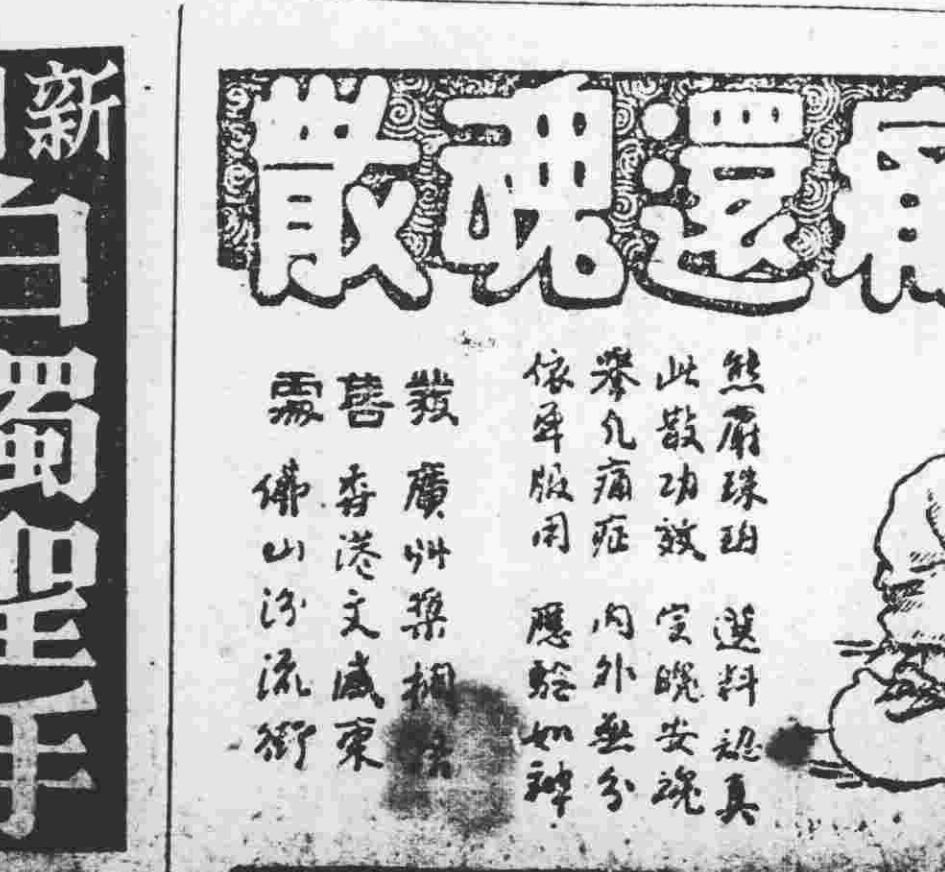 痛還魂散
熊麝珠珀 選料認真
此散功效 定魄安魂
舉凡痛症 內外無分
依單服用 應驗如神
發 廣州槳欄
善 香港文咸東
處 佛山汾流街
新
白濁聖手